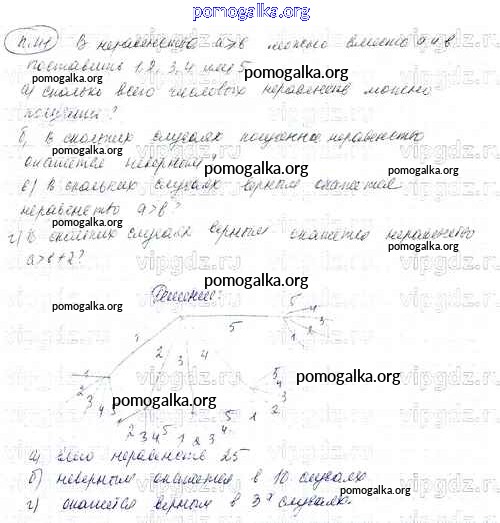 pomogalka.org
В неравенство a≥b можно вместо a и b
поставить 1, 2, 3, 4 или 5
pomogalka.org
а) сколько всего числовых неравенств можно
получить?
pomogalka.org
б) в скольких случаях полученное неравенство
окажется неверным?
pomogalka.org
в) в скольких случаях верным окажется
неравенство a>b?
pomogalka.org
г) в скольких случаях верным окажется неравенство
a>b+2?
pomogalka.org
Решение:
pomogalka.org
5
5
4
3
2
1
2
3
4
5
4
3
pomogalka.org
2
3
4
5
pomogalka.org
2 3 4 5 1 2 3 4
5 1 2
а) всего неравенств 25
pomogalka.org
б) неверным окажется в 10 случаях
г) окажется верным в 3х случаях.
pomogalka.org
vipgdz.ru